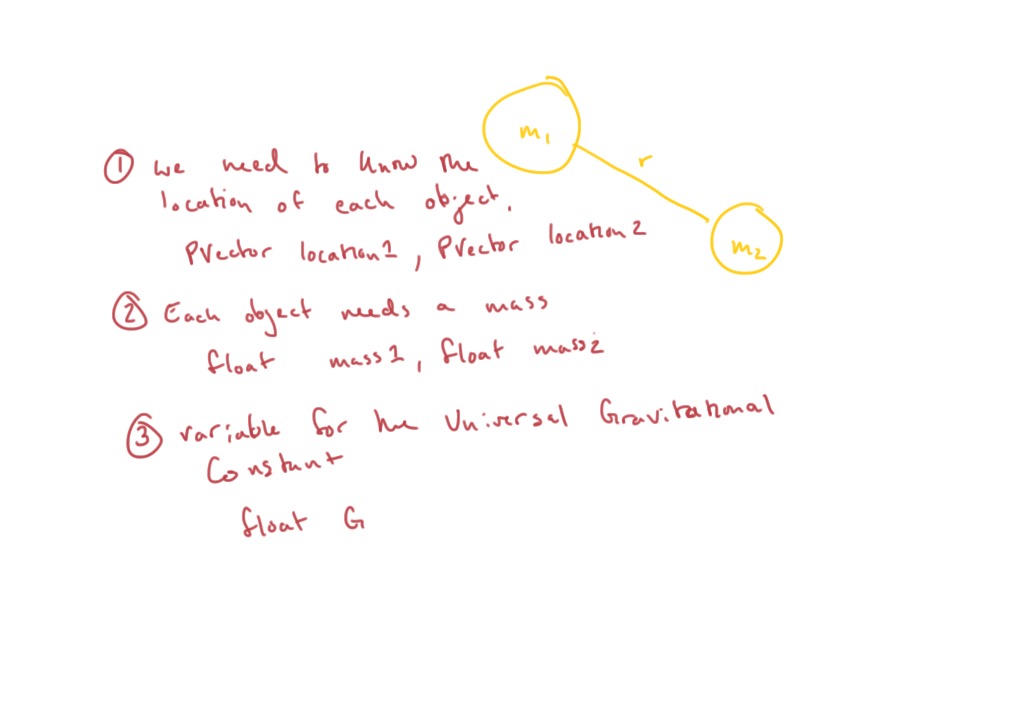 m1
r
m2
① we need to know the
location of each object.
PVector location1, PVector location2
② Each object needs a mass
float mass1, float mass2
③ variable for the Universal Gravitational
Constant
float G